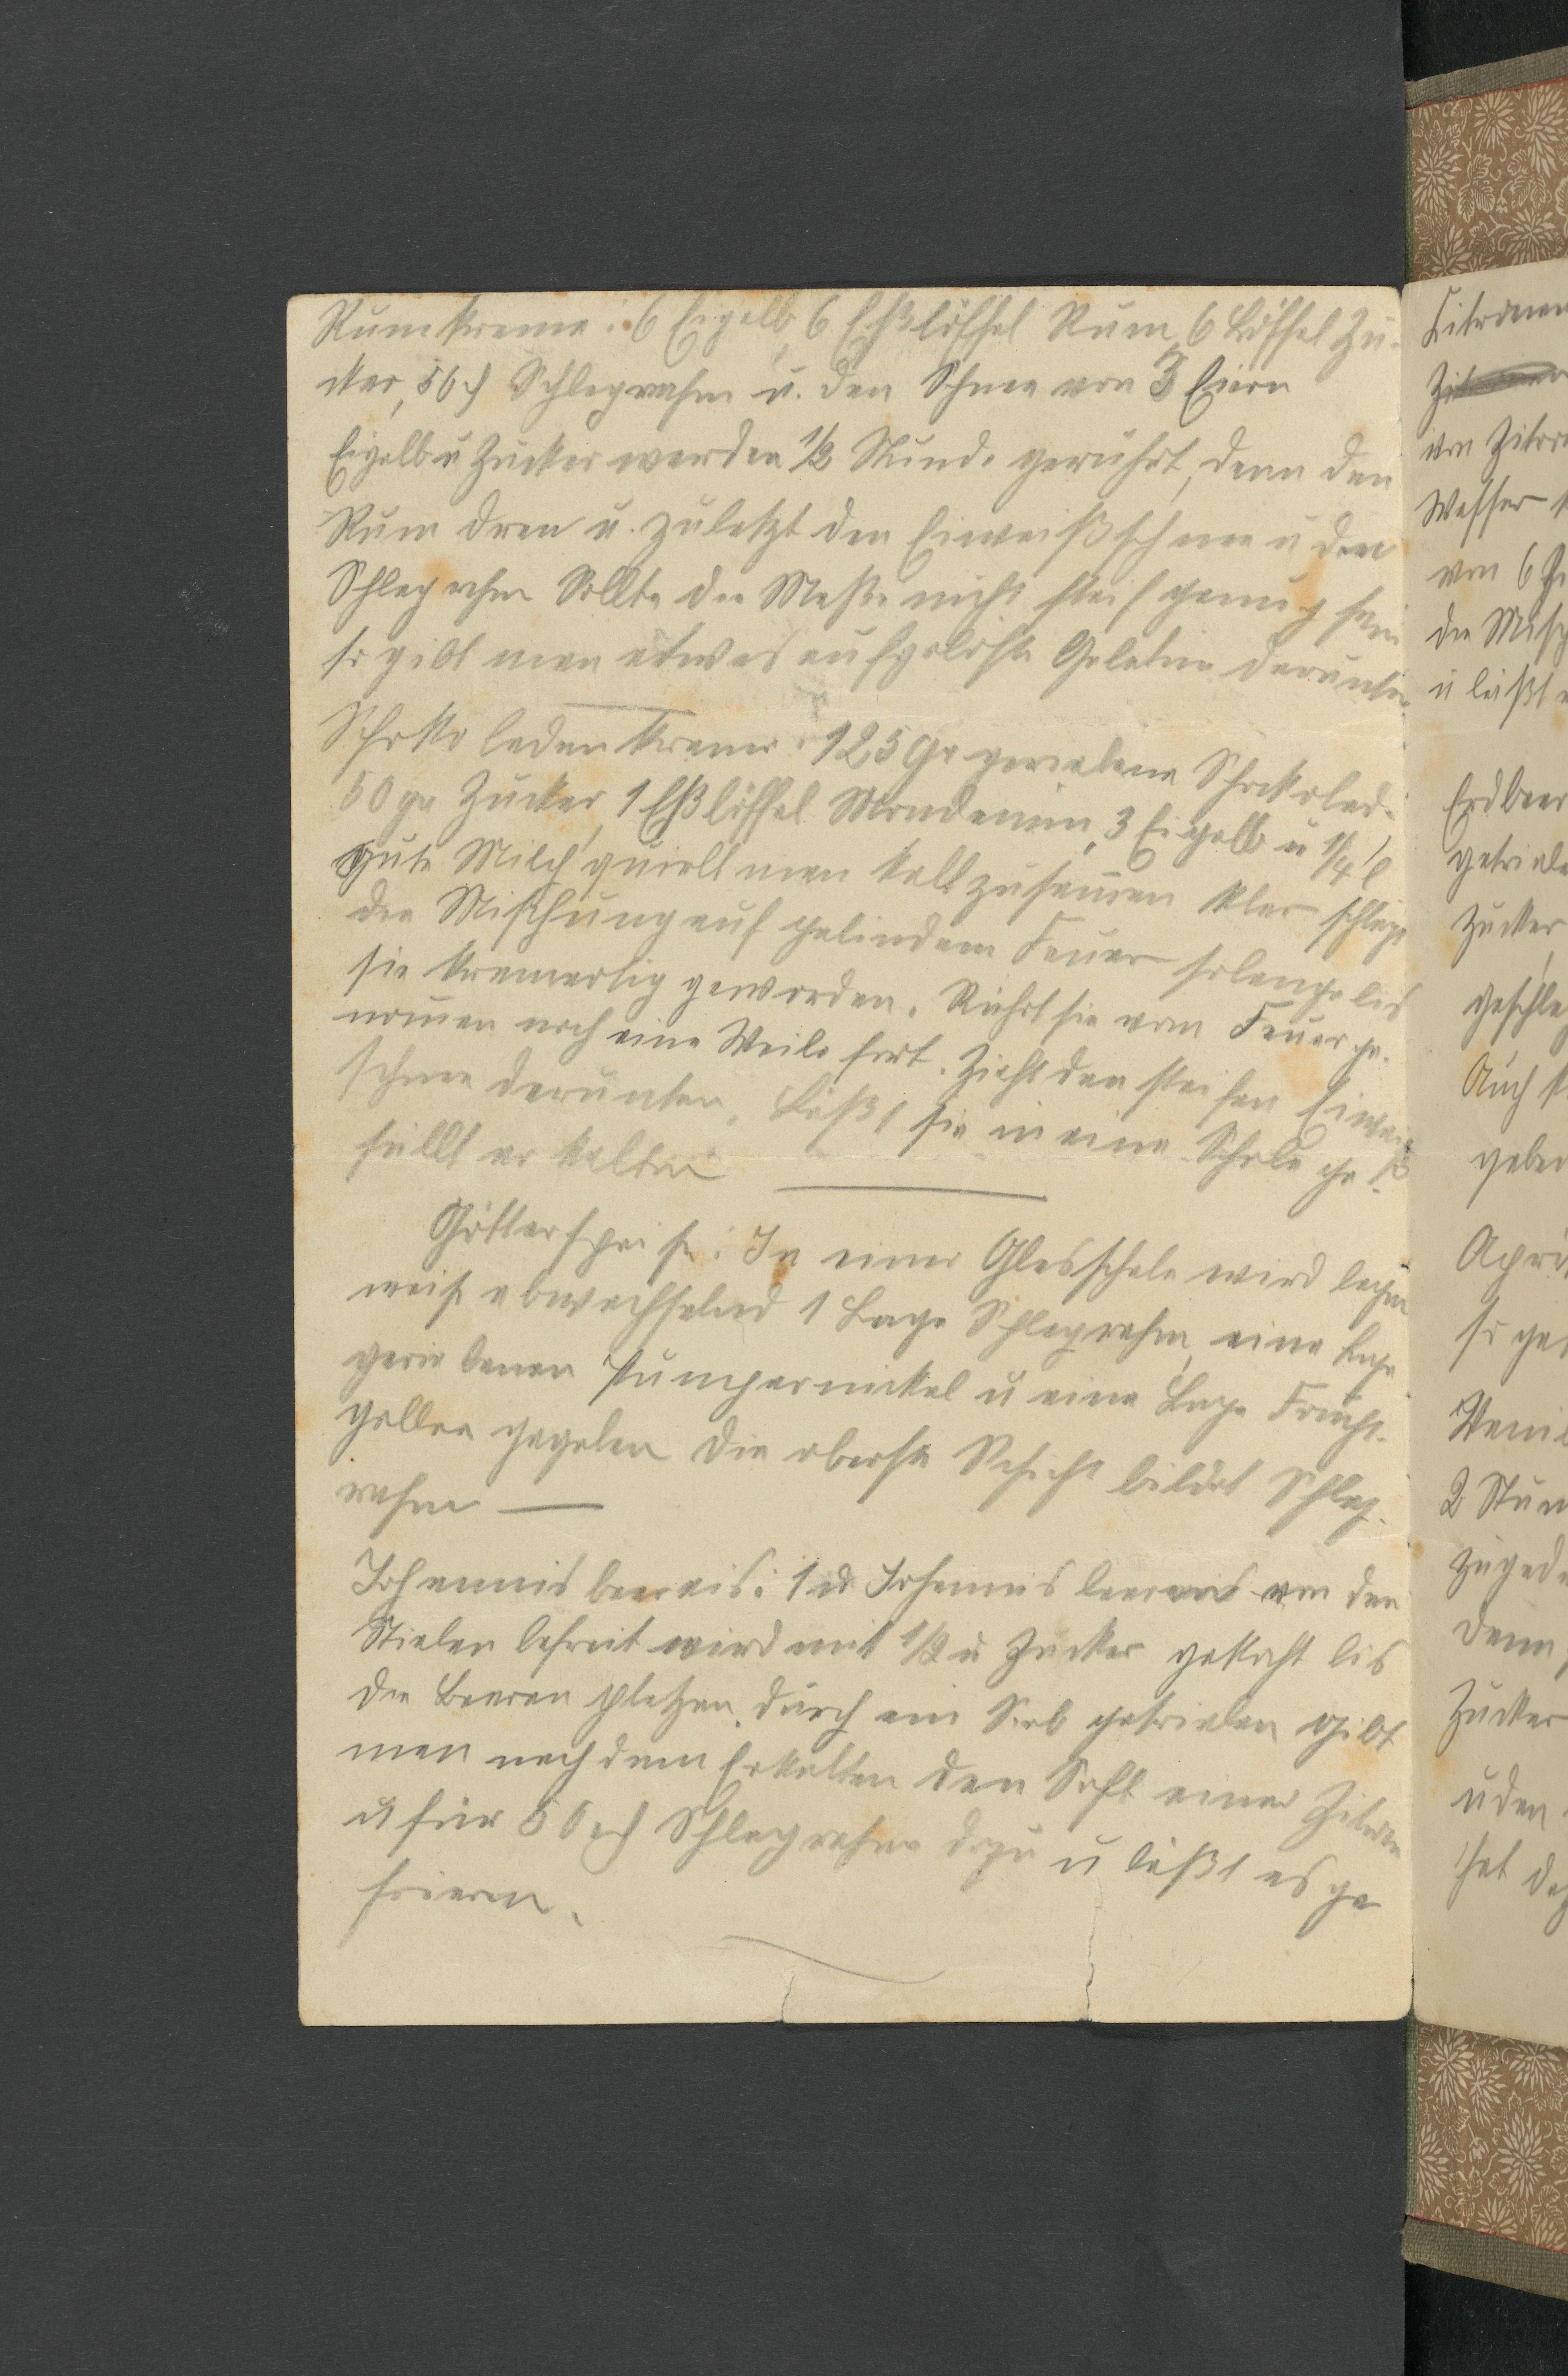 Rumkreme: 6 Eigelb, 6 Eßlöffel Rum, 6 Löffel Zu-
cker, 50 ₰ Schlagrahm u. den Schnee von 3 Eiern
Eigelb u Zucker werden 1/2 Stunde gerührt, dann den
Rum dran u. zuletzt den Eiweißschnee u den
Schlagrahm Sollte die Masse nicht steif genug sein
so gibt man etwas aufgelöste Gelatine darunter.
Schokoladenkreme: 125 Gr geriebene Schokolade
50 gr Zucker, 1 Eßlöffel Mondamin, 3 Eigelb u 1/4 l
gute Milch quirlt man kalt zusamen klar schlägt
die Mischung auf gelindem Feuer solange bis
sie kremartig geworden. Rührt sie vom Feuer ge-
nomen noch eine Weile fort. Zieht den steifen Eiweiß
schnee darunter. Läßt sie in eine Schale ge-
füllt erkalten
Götterspeise: In einer Glasschale wird lagen
weise abwechselnd 1 Lage Schlagrahm, eine Lage
geriebenen Pumpernickel u eine Lage Frucht-
gallee gegeben Die oberste Schicht bildet Schlag-
rahm
Johannisbeereis: 1 ℔ Johannisbeeren von den
Stielen befreit wird mit 1/2 ℔ Zucker gekocht bis
die Beeren platzen, durch ein Sieb getrieben gibt
man nach dem Erkalten den Saft einer Zitrone
u für 50 ₰ Schlagrahm dazu u läßt es ge
frieren.
Zitronen
von Zitro
Wasser
von 6
die Misch
u läßt
Erdbeer
getriebe
Zucker
geschla
Auch
geben
Apri
so
Vanil
2 Stun
zugede
dann
Zucker
u den